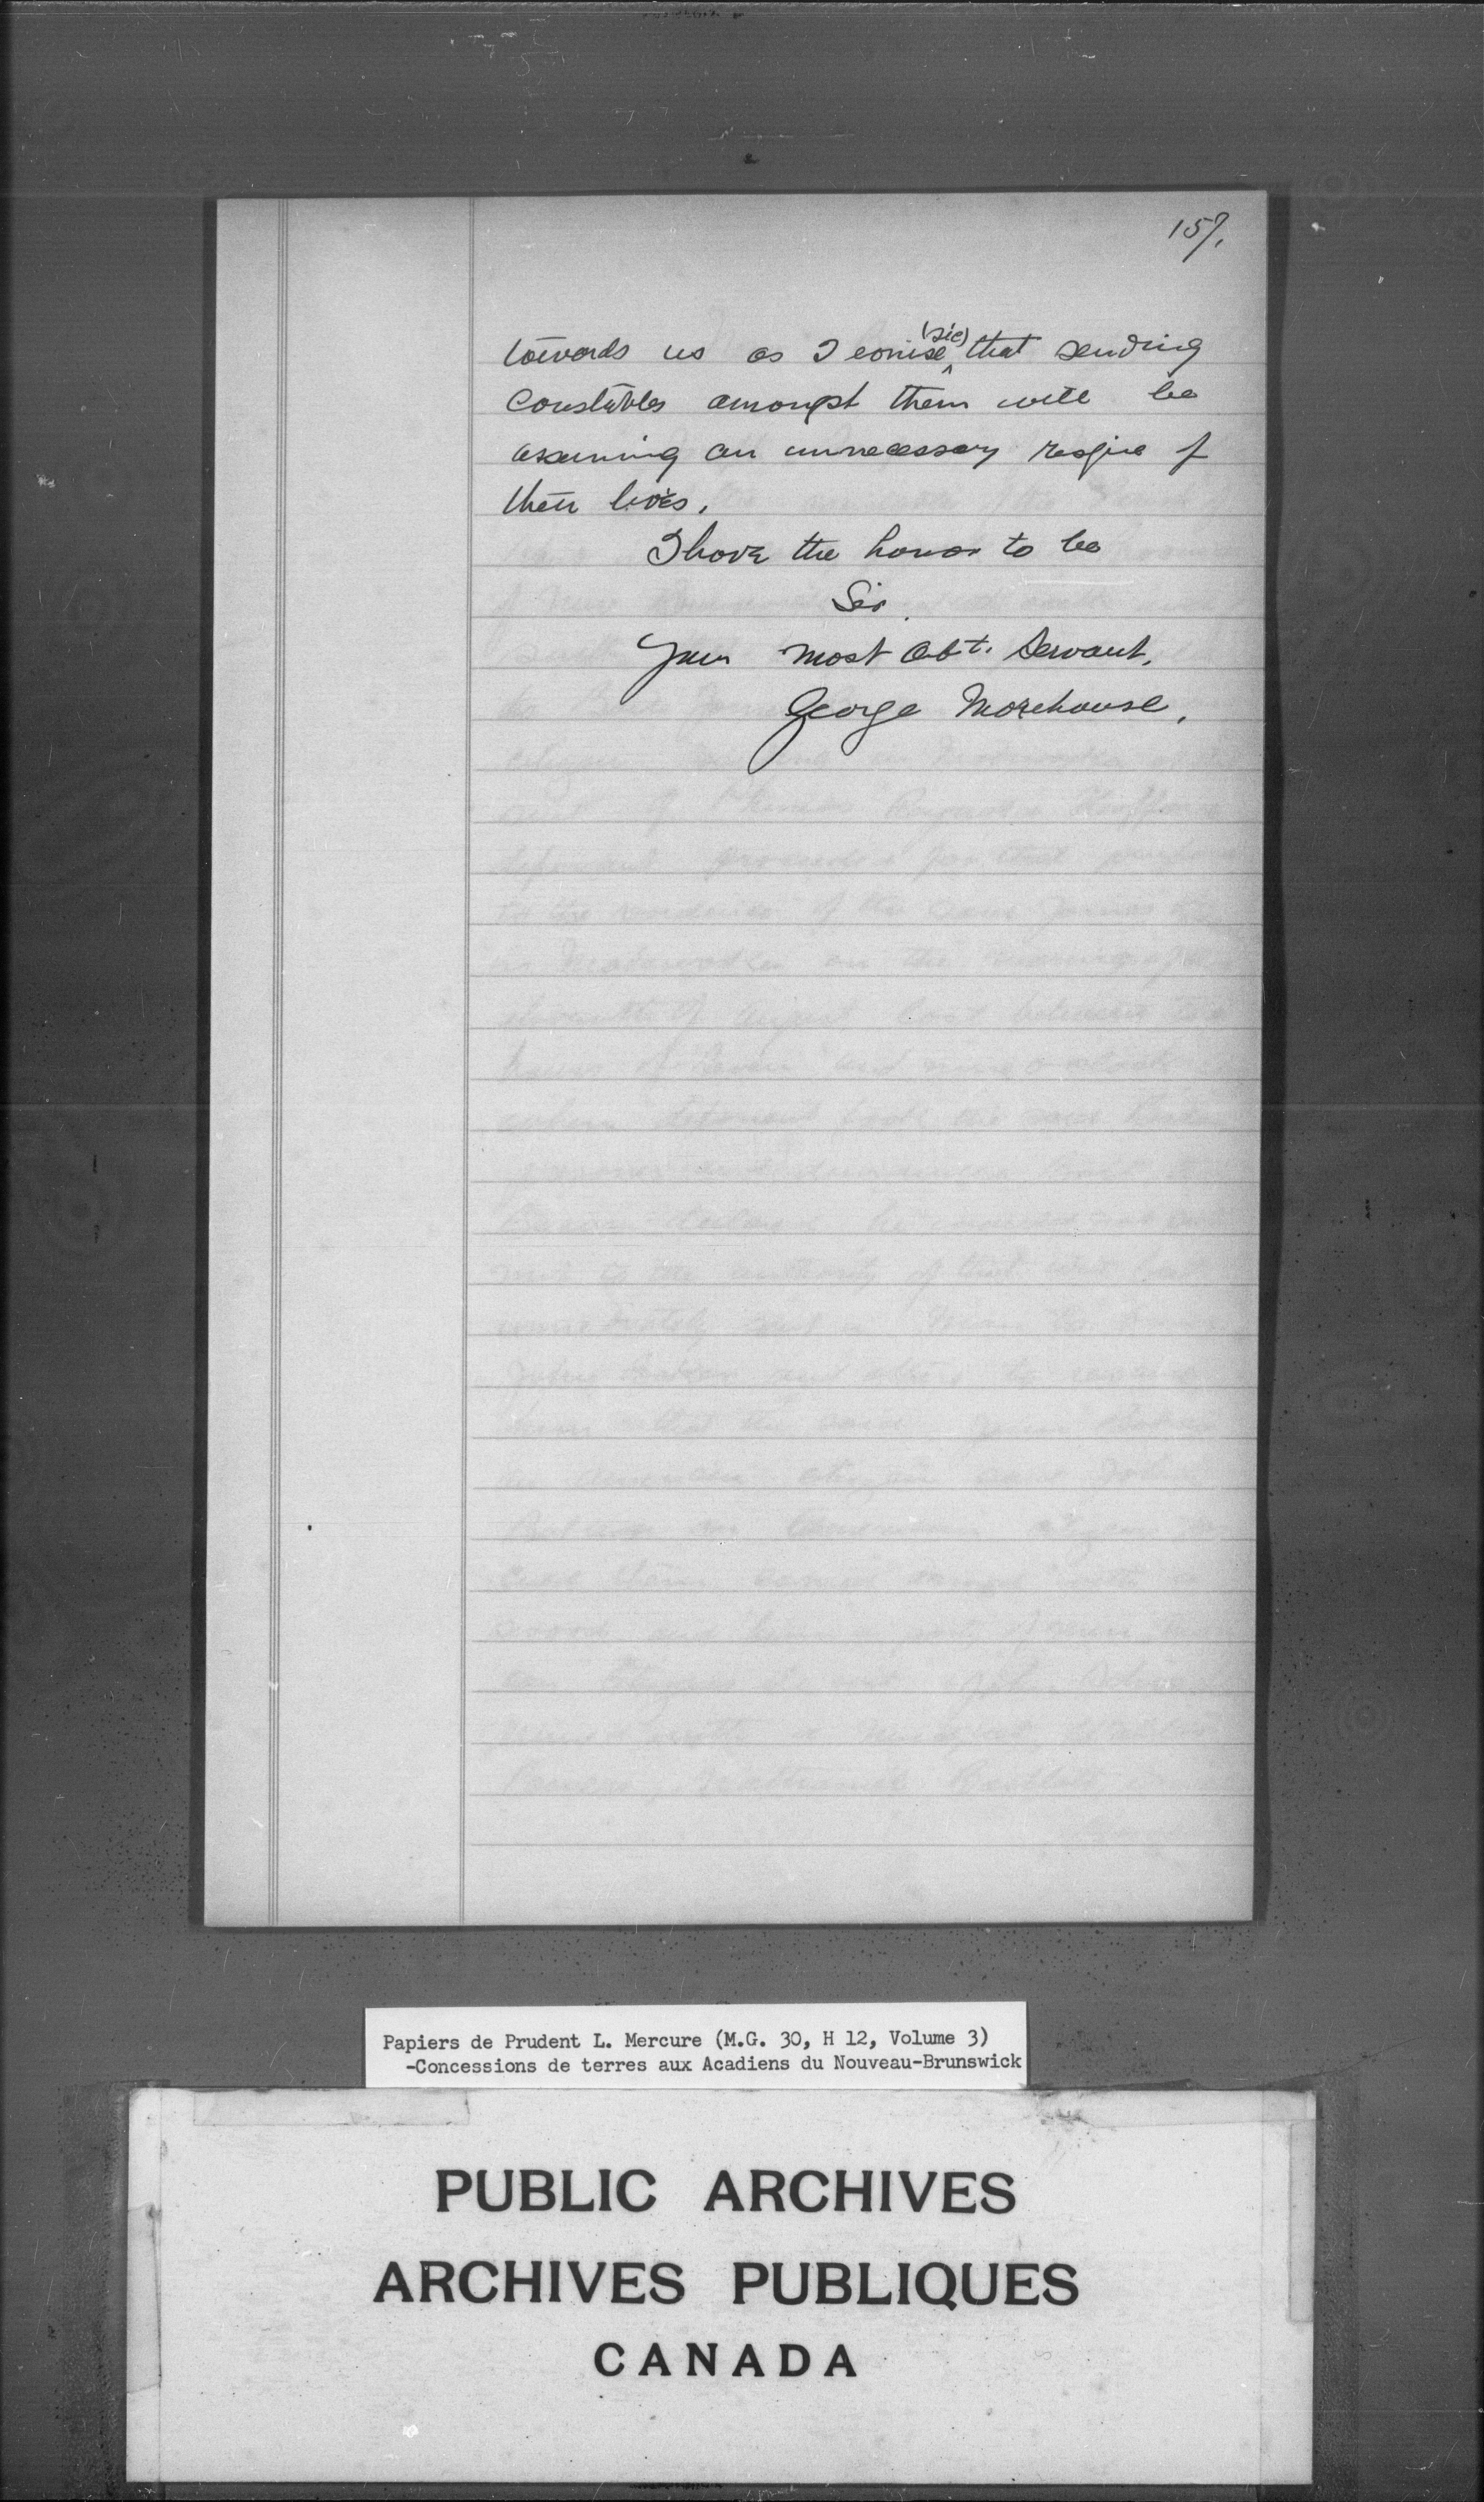 157.
towards us as I conise (sic) that sending
Constables amongst them will be
assuming an unnecessary resque of
their lives.
I have the honor to be
Sir.
Your most Obt. Servant,
George Morehouse.
Papiers de Prudent L. Mercure (M.G. 30, H 12, Volume 3)
-Concessions de terres aux Acadiens du Nouveau-Brunswick
PUBLIC ARCHIVES
ARCHIVES PUBLIQUES
CANADA